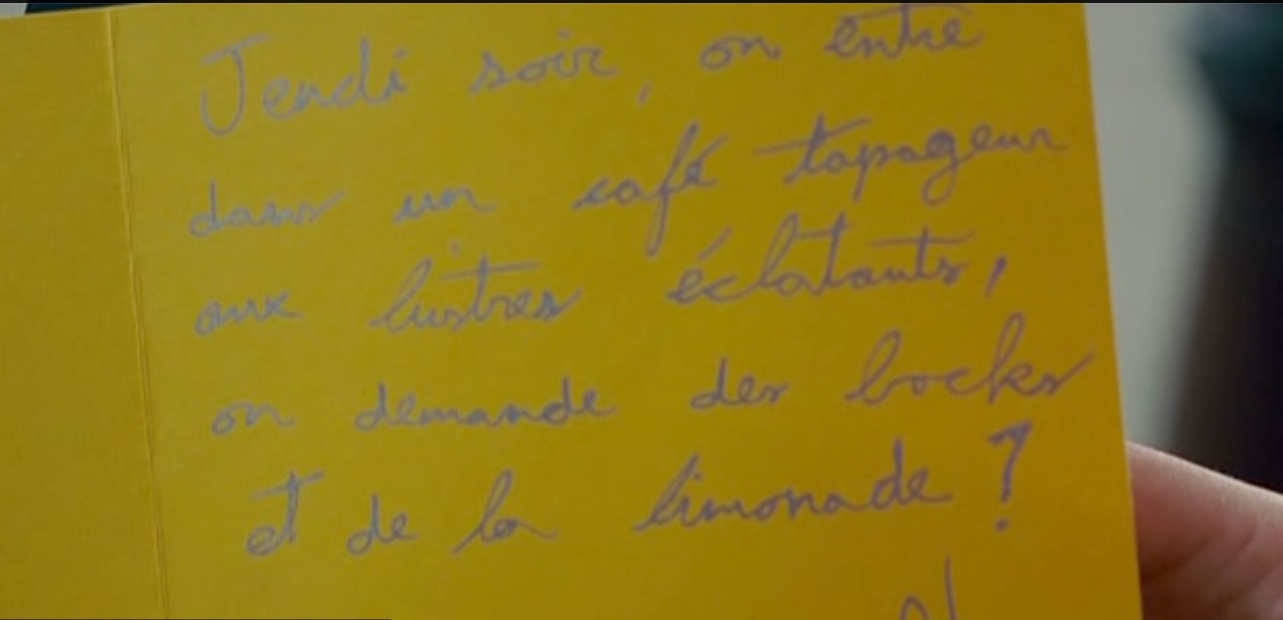 Jeudi soir, on entre
dans un café tapageur
aux lustres éclatants,
on demande des bocks
et de la limonade ?